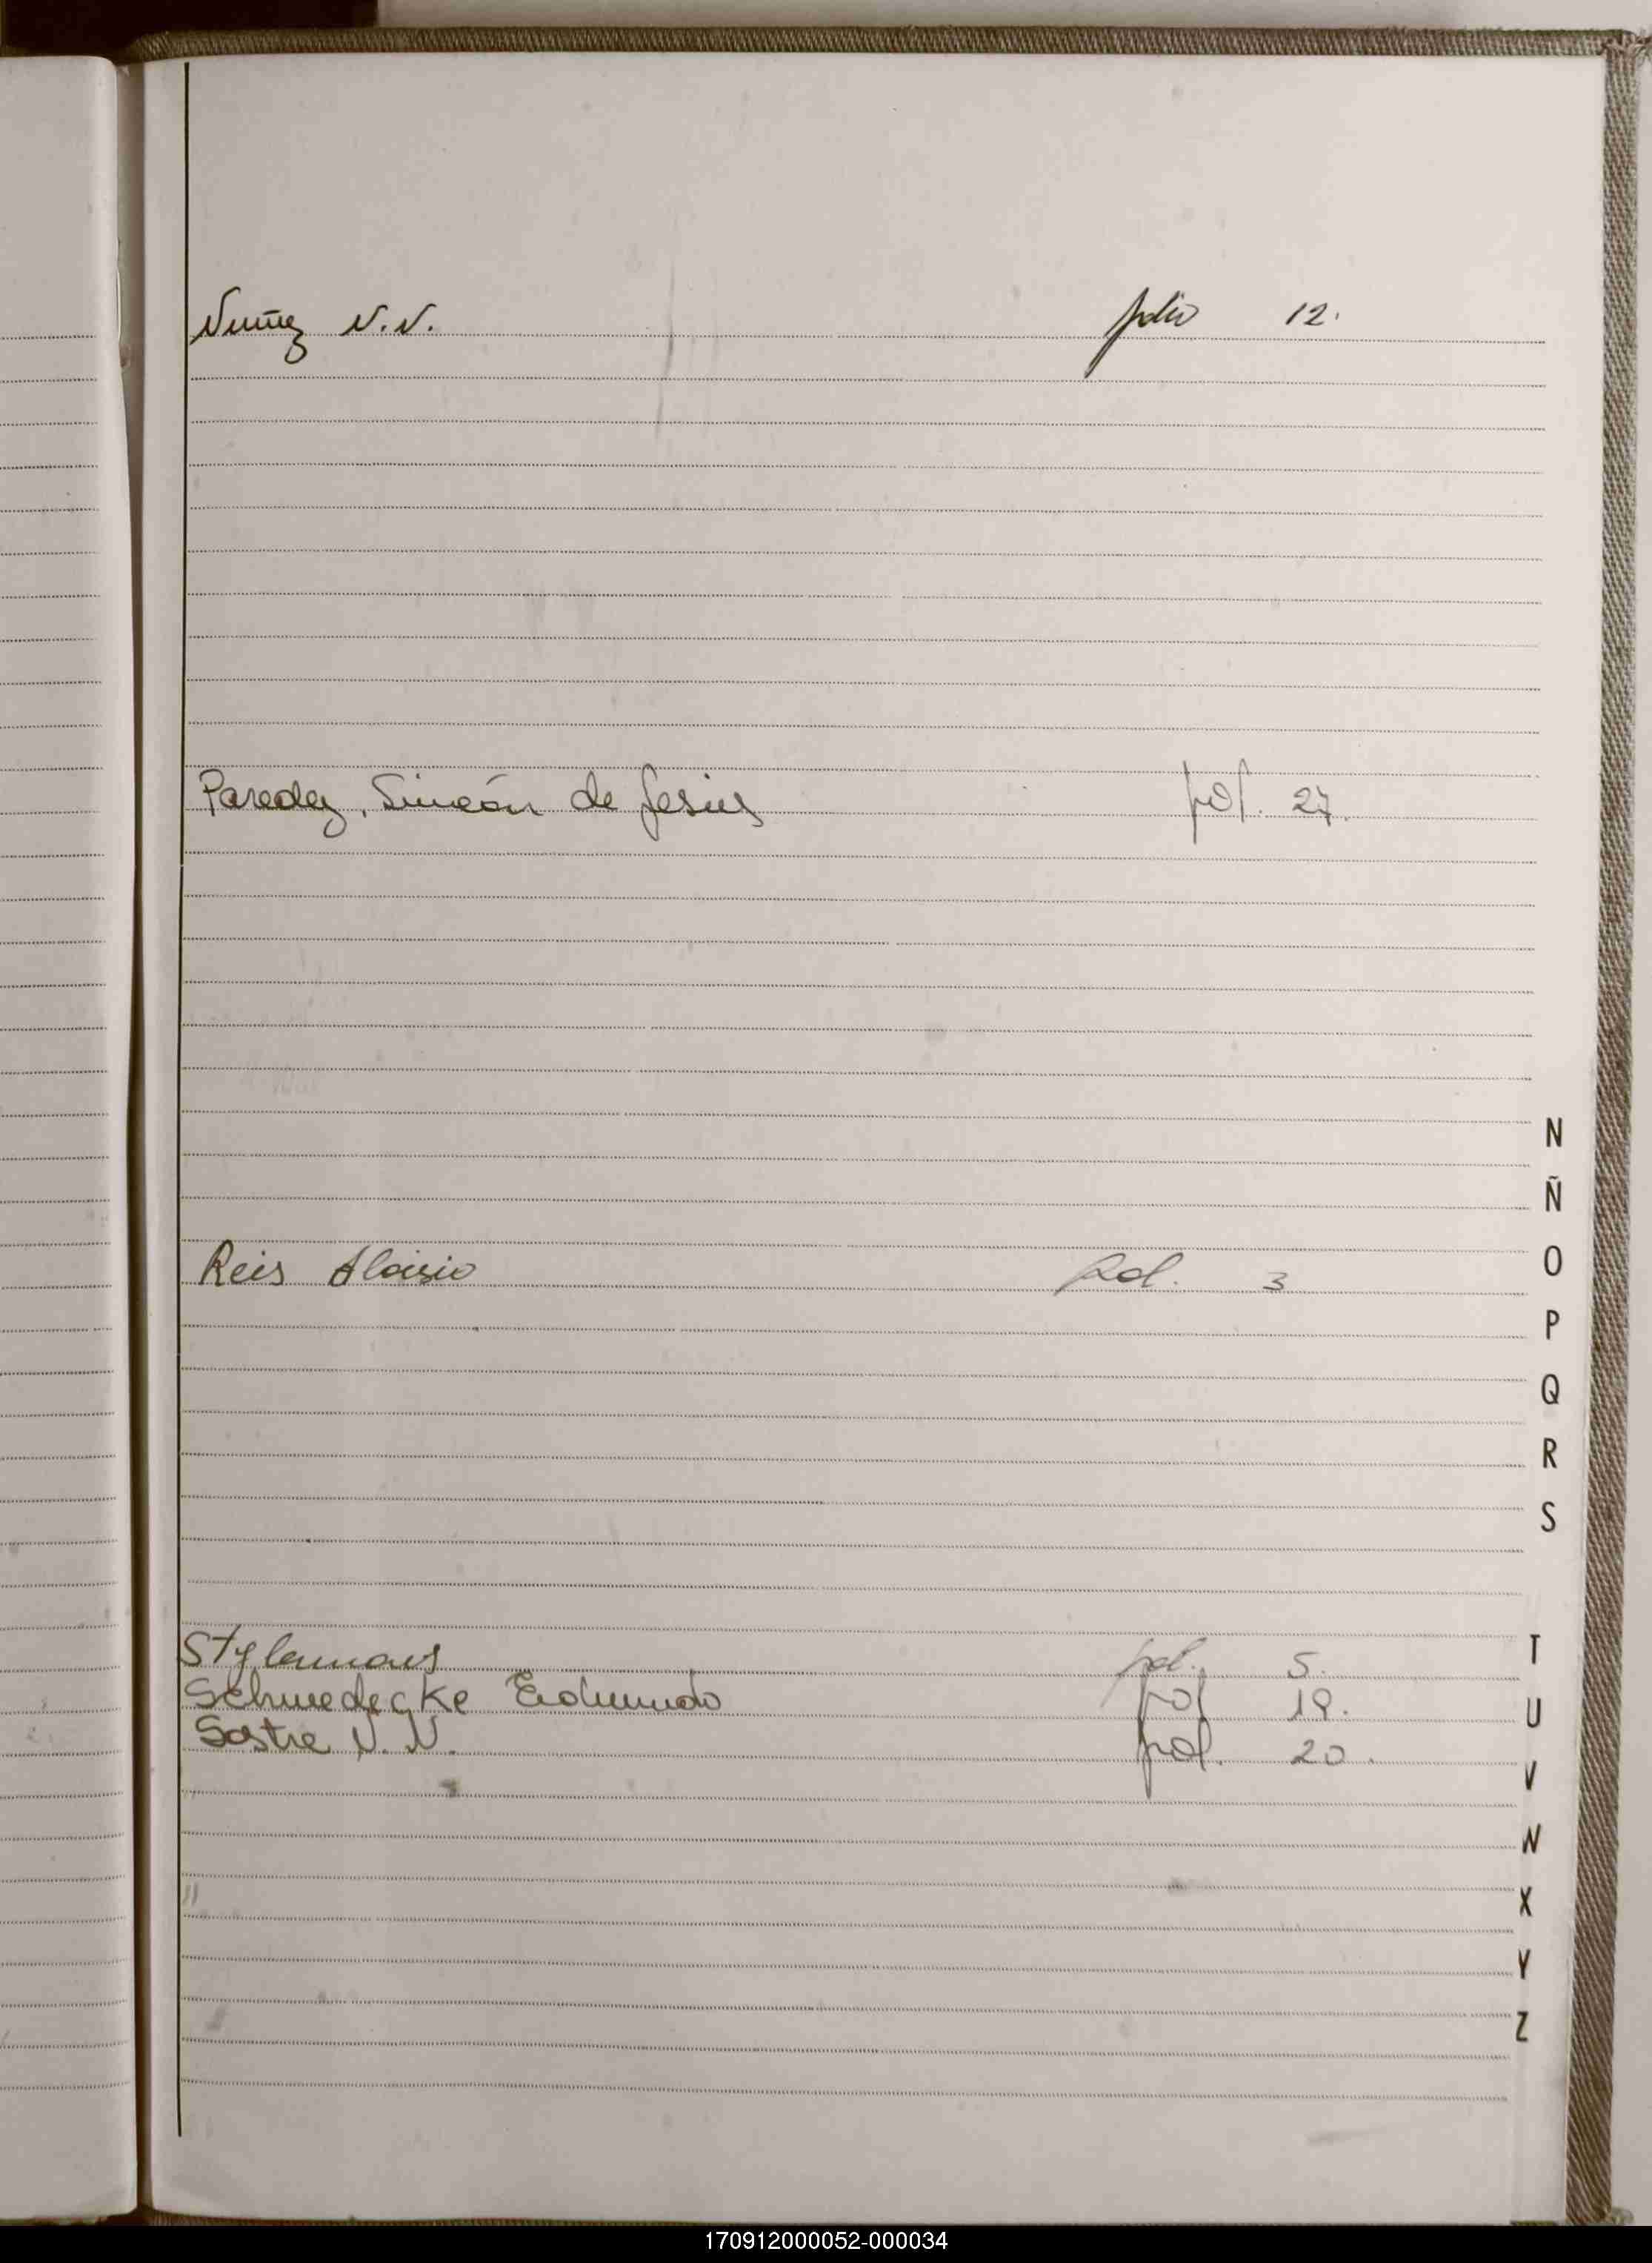 Nuñez N.N. folio 12.
Paredez, Simeón de Jesús fol. 27.
Reis Aloisio fol. 3
N
Ñ
O
P
Q
R
S
Stylianous fol. 5.
Schwedecke Edmundo fol 19.
Sastre N.N. fol. 20.
T
U
V
W
X
Y
Z
170912000052-000034